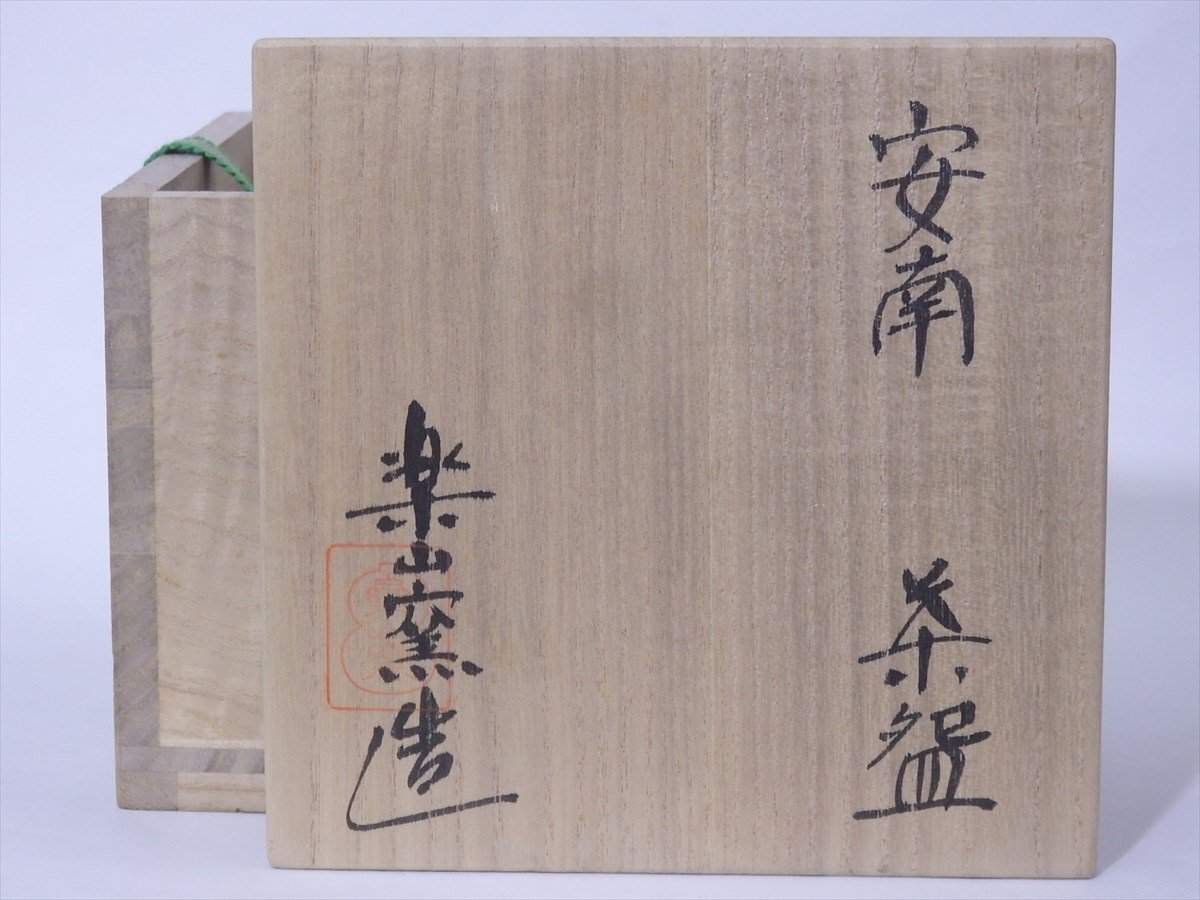 安南 茶盌
楽山窯造